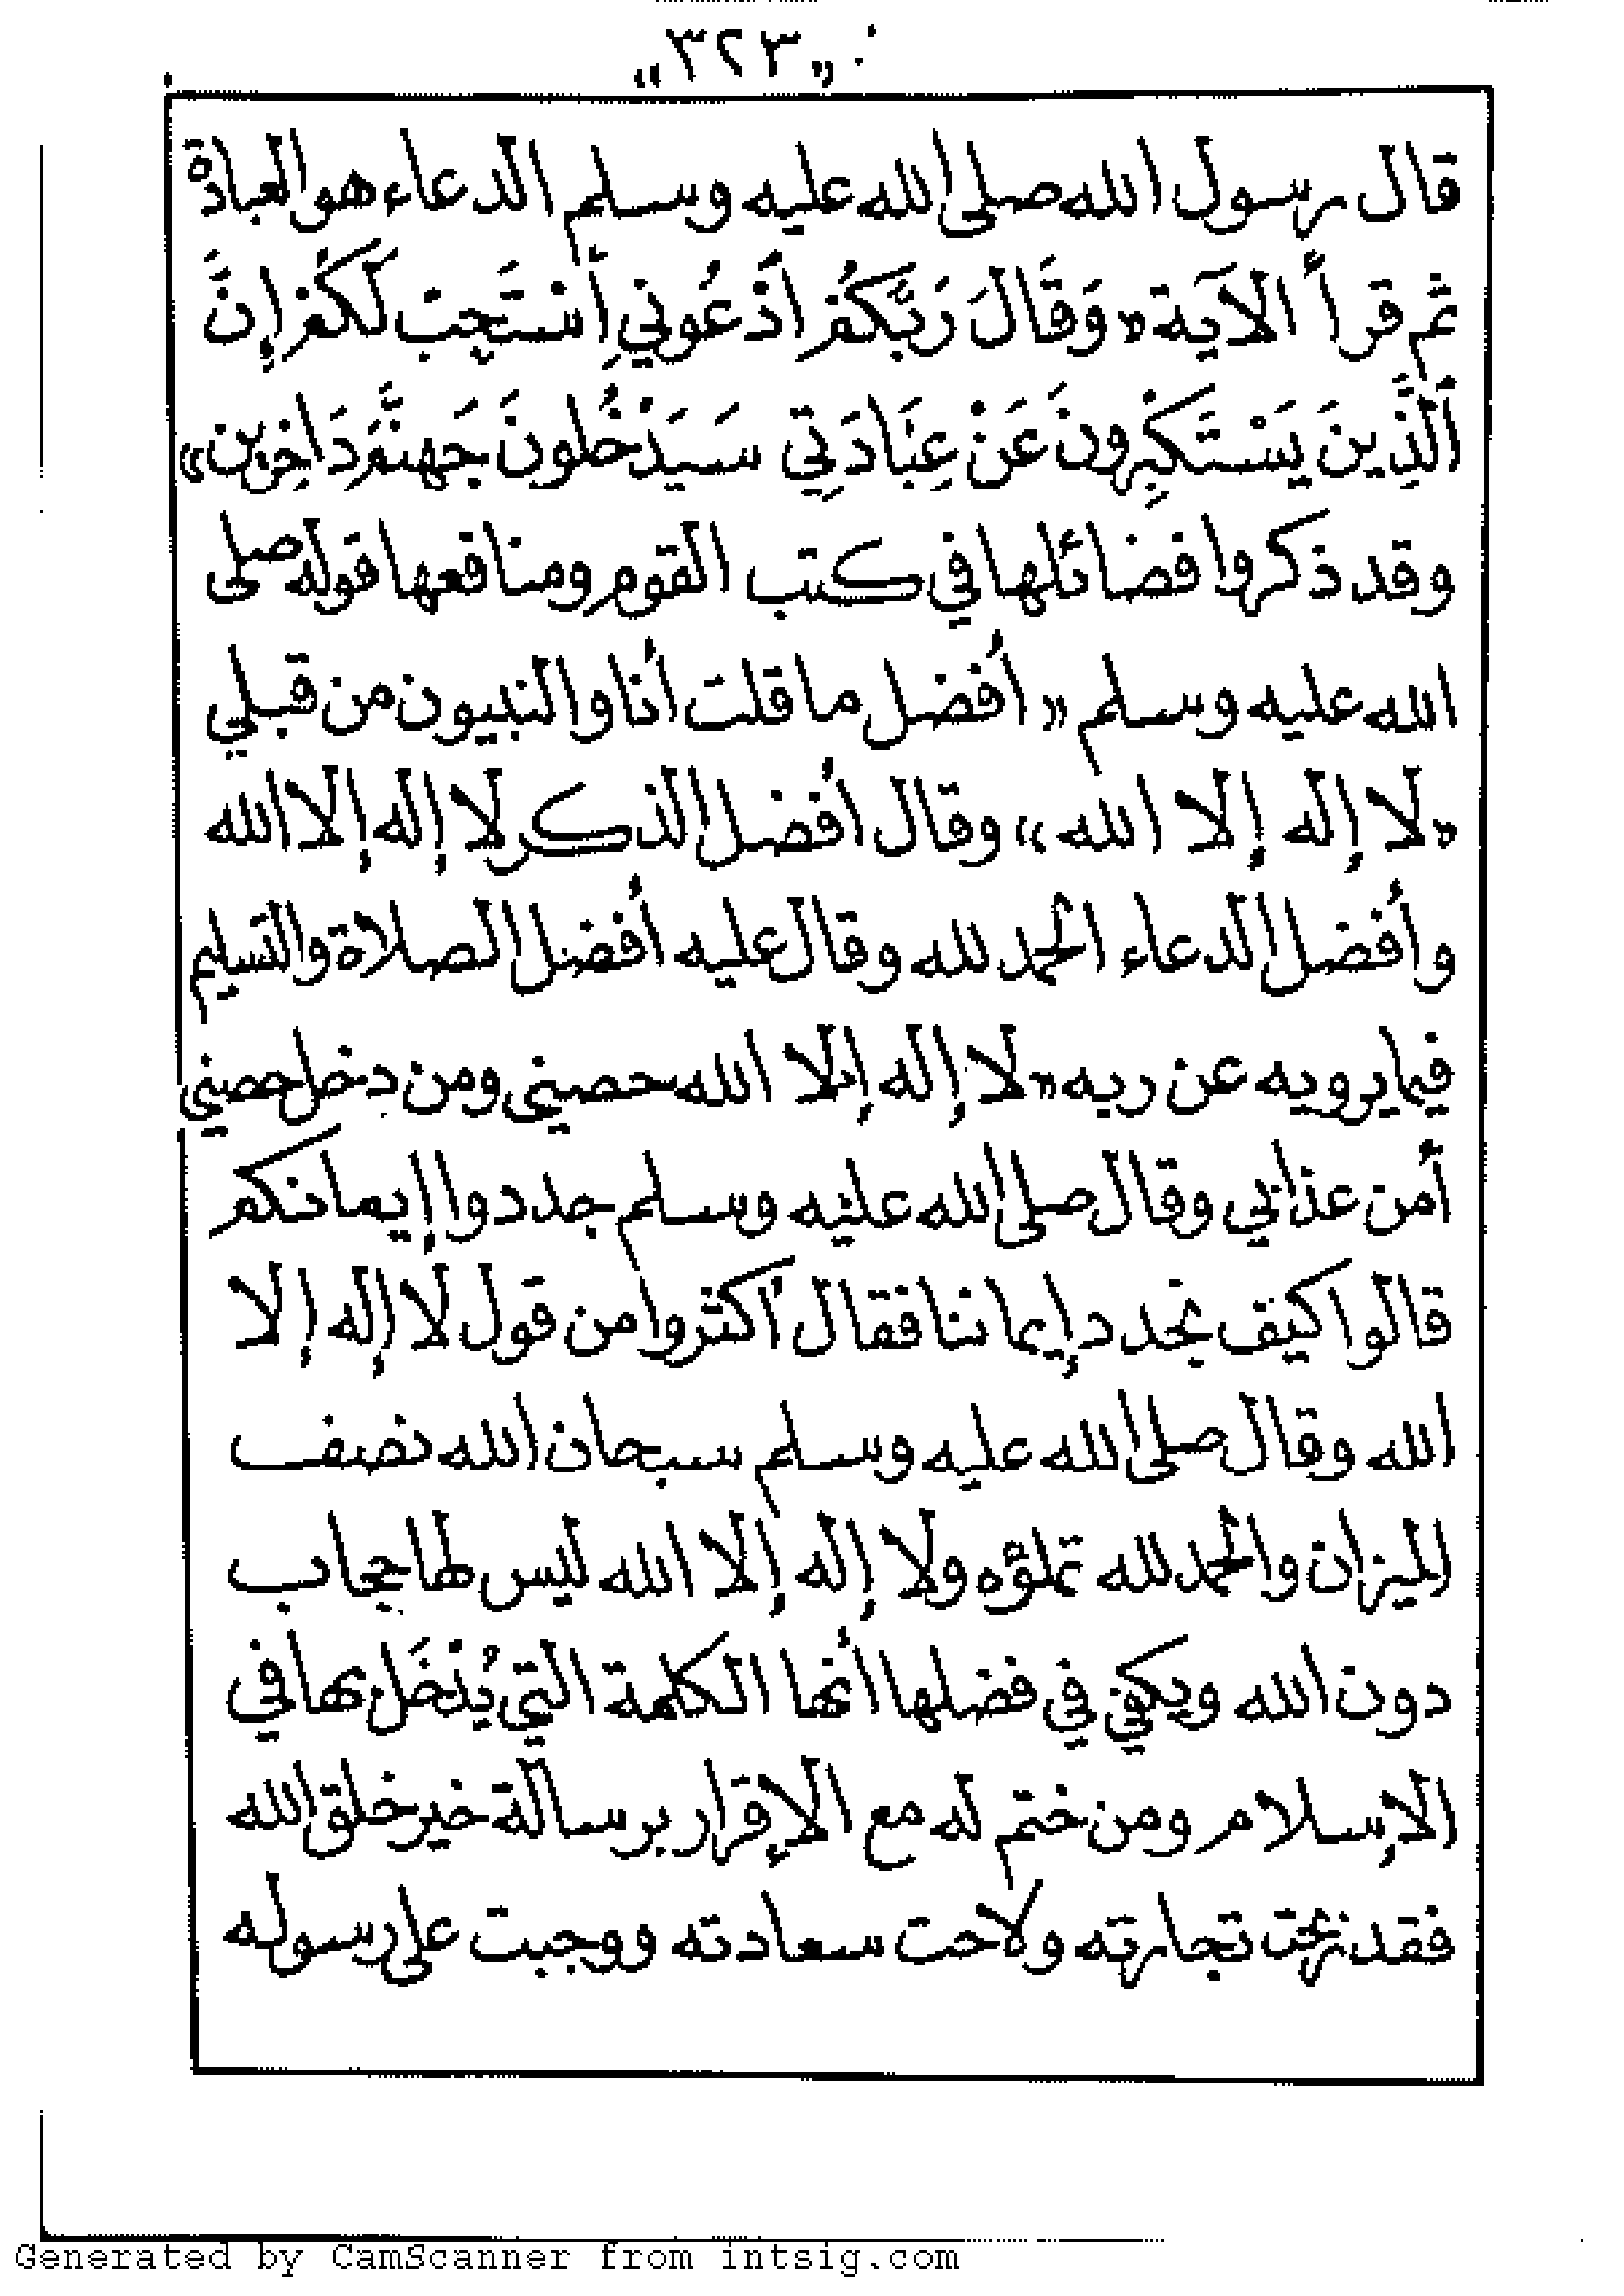 «٣٢٣»
قال رسول الله صلى الله عليه وسلم الدعاء هو العبادة
ثم قرأ الآية «وَقَالَ رَبُّكُمُ اَدْعُونِي أَسْتَجِبْ لَكُمْ إِنَّ
اَلَّذِينَ يَسْتَكْبِرُونَ عَنْ عِبَادَتِي سَيَدْخُلونَ جَهنَّمَ دَاخِرين»
وقد ذكروا فضائلها في كتب القوم ومنافعها قوله صلى
الله عليه وسلم «أفضل ما قلت أنا والنبيون من قبلي
«لا إله إلا الله» وقال أفضل الذكر لا إله إلا الله
وأفضل الدعاء الحمد لله وقال عليه أفضل الصلاة والتسليم
فيما يرويه عن ربه «لا إله إلا الله حصيني ومن دخل حصني
أمن عذابي وقال صلى الله عليه وسلم جددوا إيمانكم
قالوا كيف نجدد إيماننا فقال أكثروا من قول لا إله إلا
الله وقال صلى الله عليه وسلم سبحان الله نصف
الميزان والحمد لله تملؤه ولا إله إلا الله ليس لها حجاب
دون الله ويكفي في فضلها أنها الكلمة التي يُدْخَل بها في
الإسلام ومن ختم له مع الإقرار برسالة خير خلق الله
فقد ربحت تجارته ولاحت سعادته ووجبت على رسوله
Generated by CamScanner from intsig.com